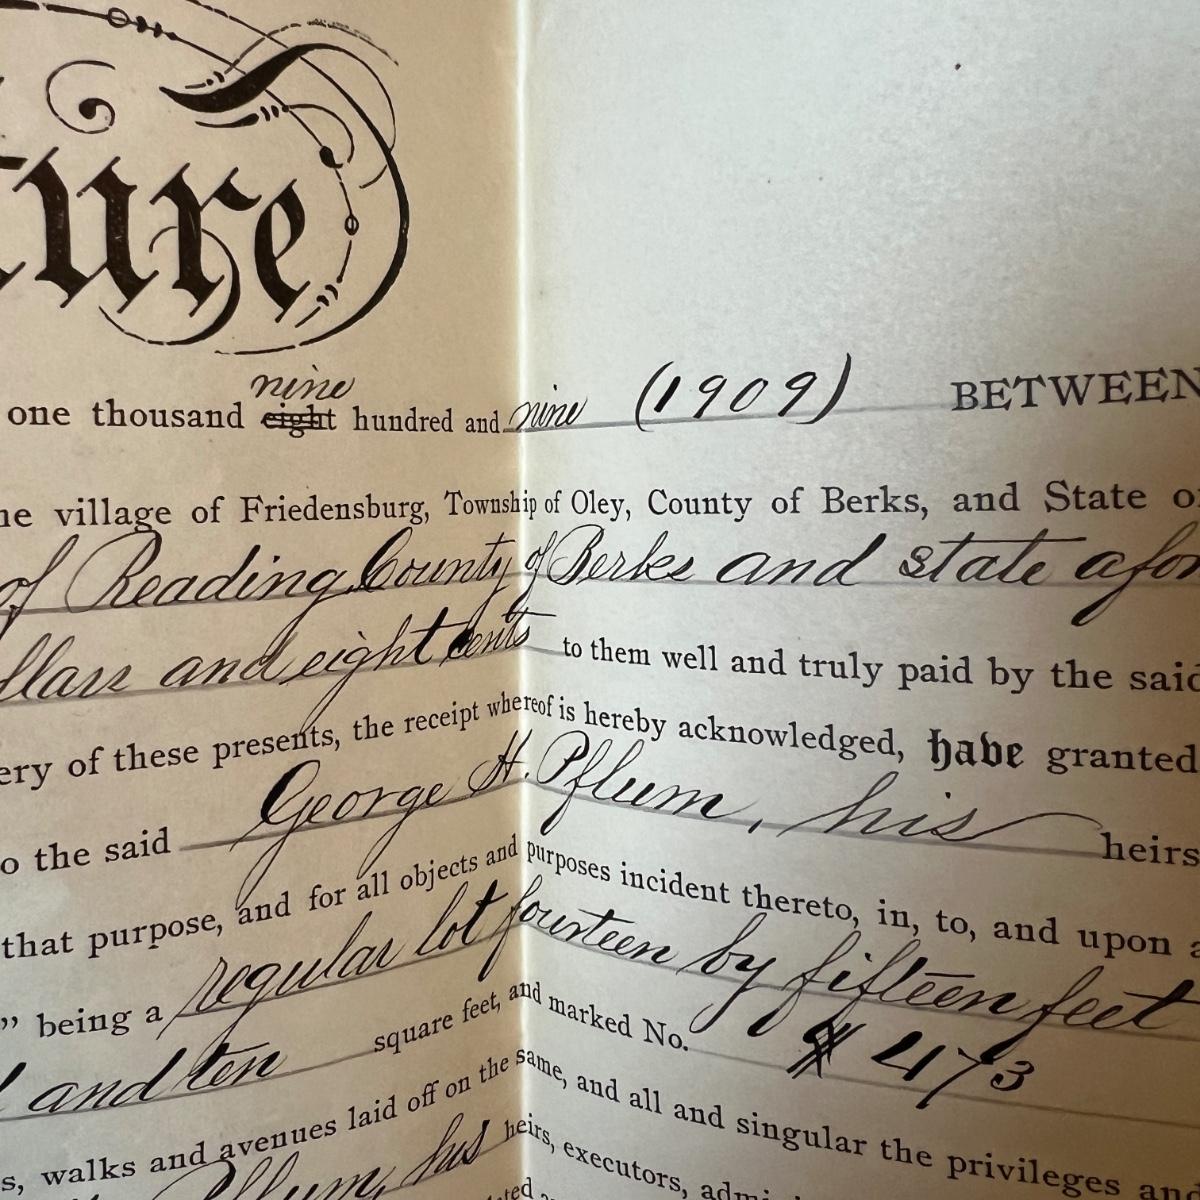 ture
nine
one thousand eight hundred and nine (1909) BETWEEN
village of Friedensburg, Township of Oley, County of Berks, and State
of Reading County of Berks and state
and eight cents to them well and truly paid by the said
of these presents, the receipt whereof is hereby acknowledged, have granted
the said George H. Pflum, his heirs
that purpose, and for all objects and purposes incident thereto, in, to, and upon
" being a regular lot fourteen by fifteen feet
and ten square feet, and marked No. # 473
walks and avenues laid off on the same, and all and singular the privileges and
Pflum, his heirs, executors,